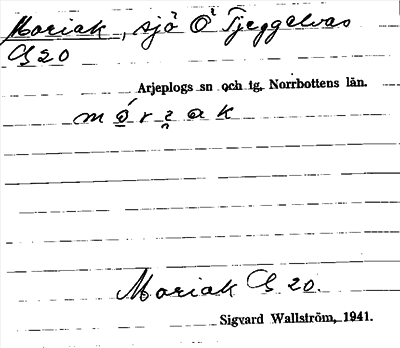 Moriak, sjö Ö Tjeggelvas
G 20
Arjeplogs sn och tg, Norrbottens län.
Moriak G 20.
Sigvard Wallström, 1941.